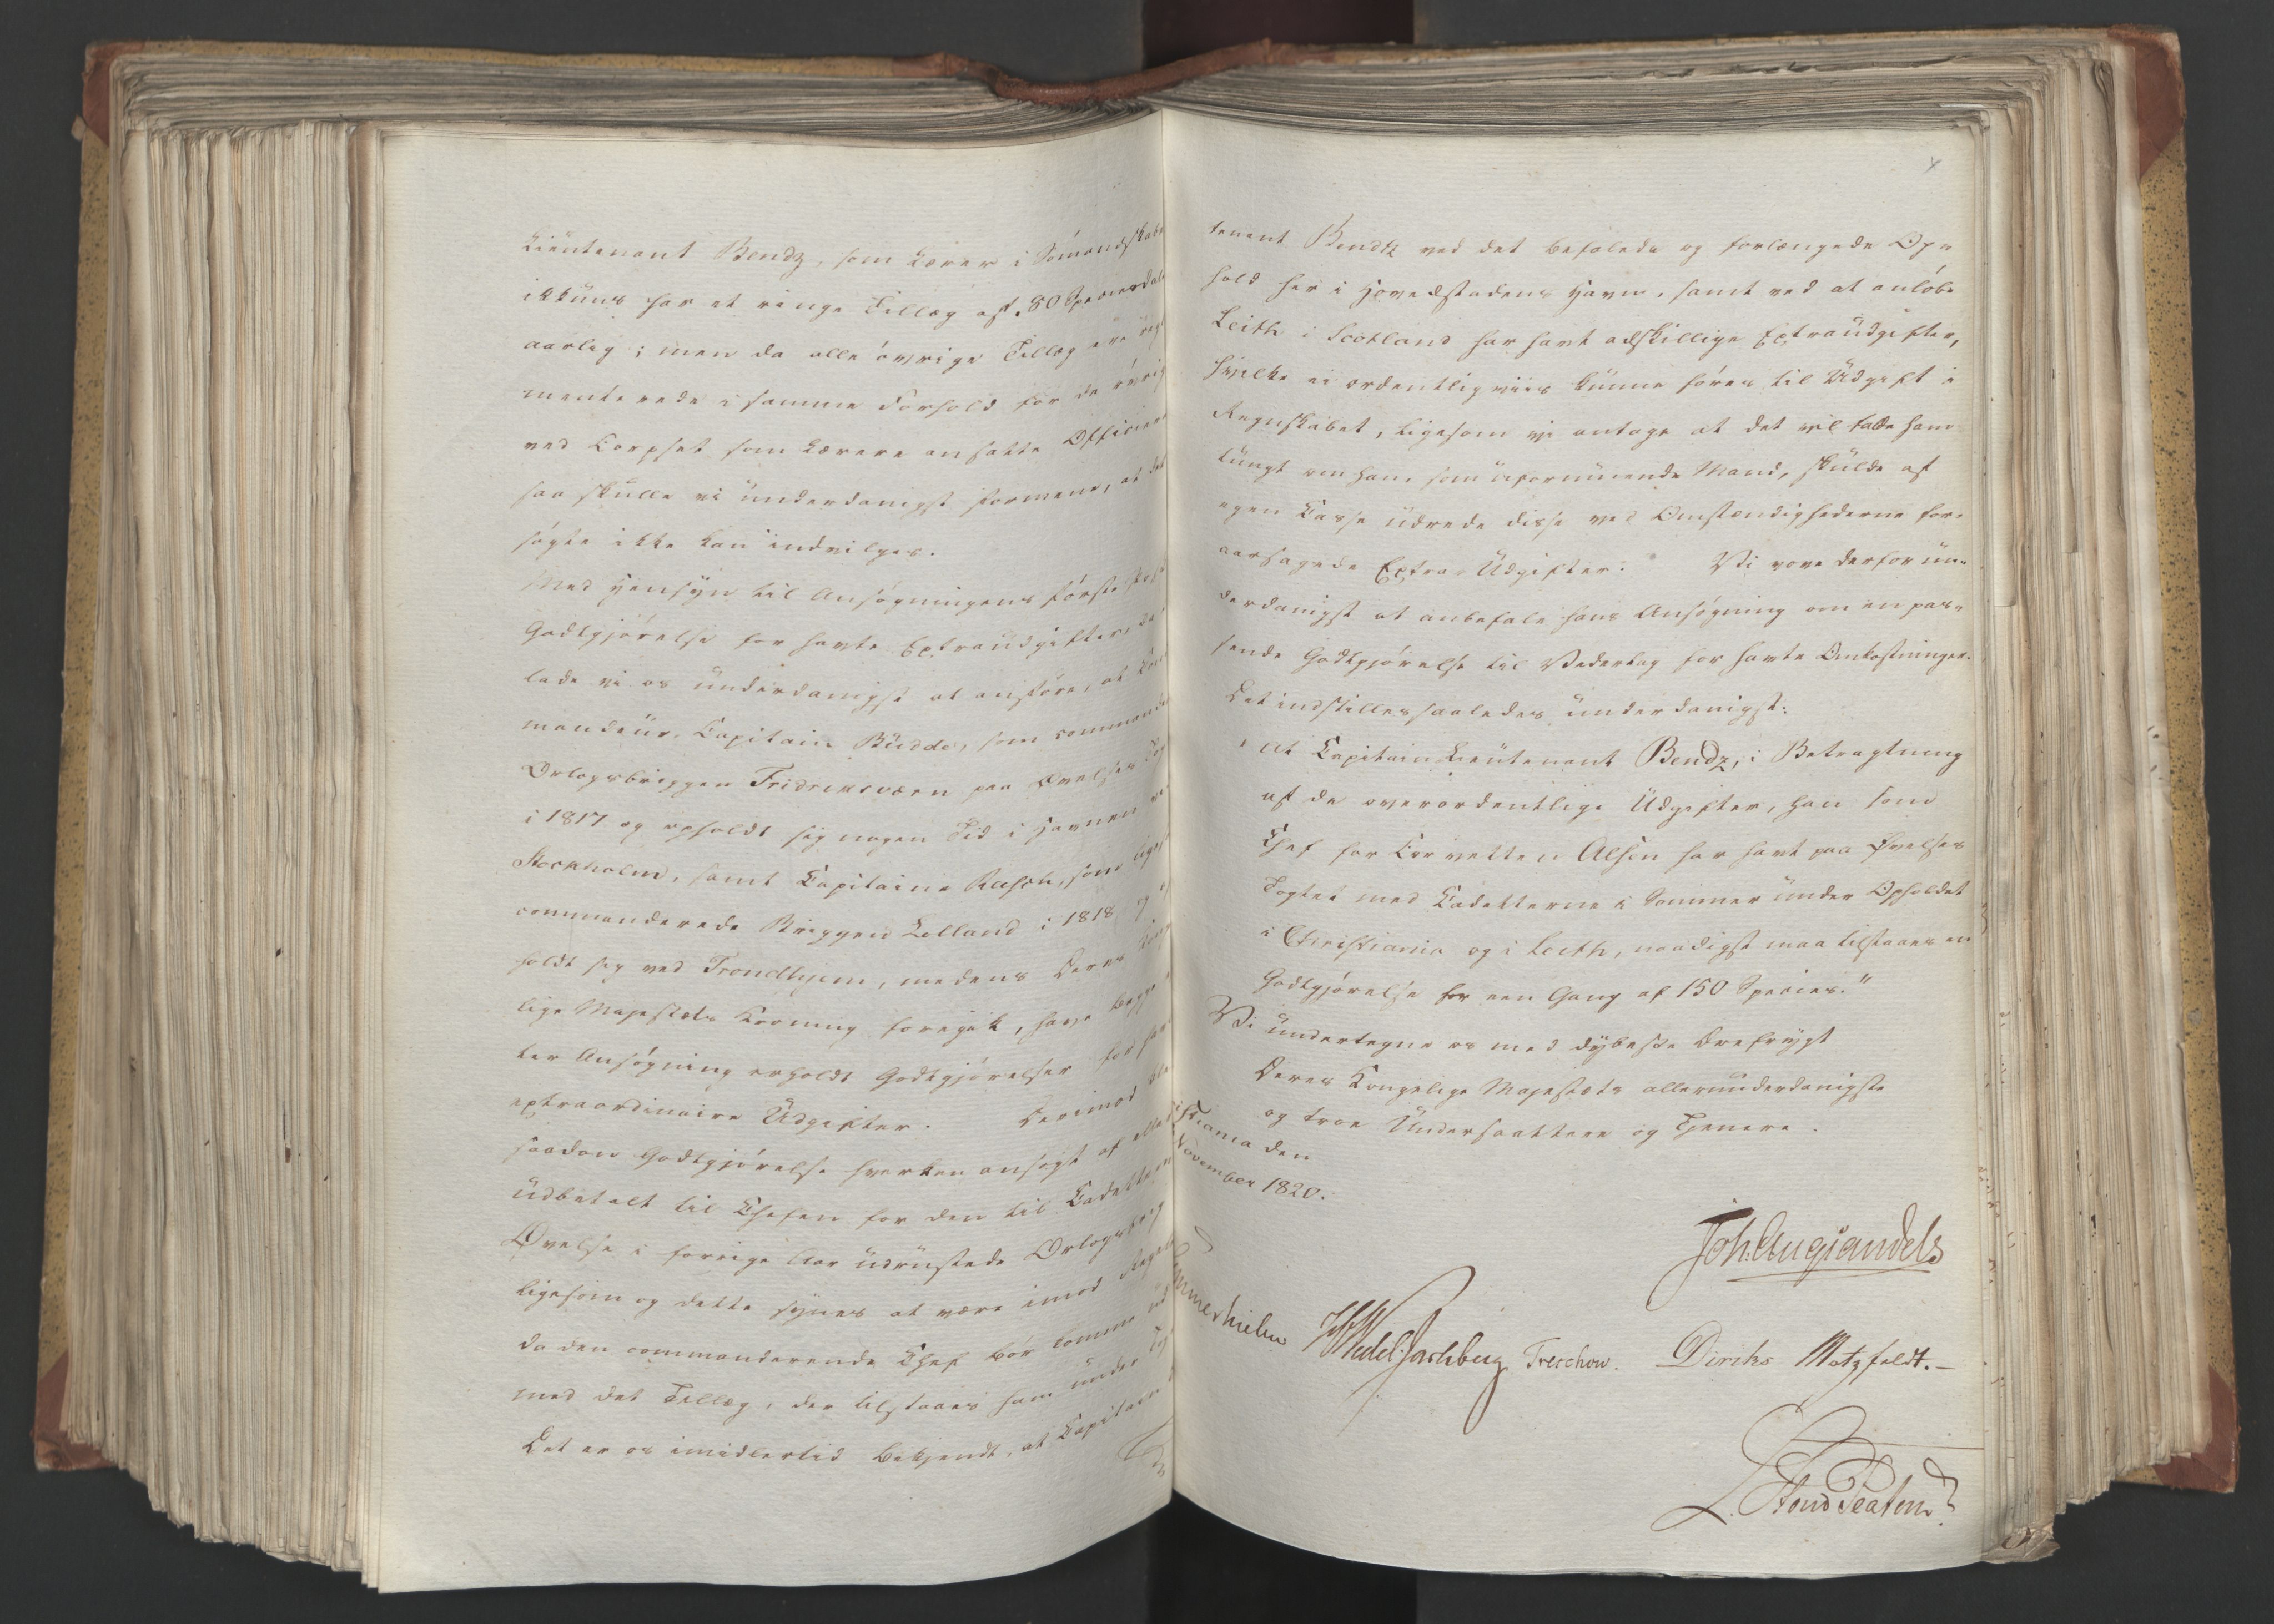 Lieutenant Bendz, som Lærer i Sömandskab
ikkuns har et ringe Tillæg af 80 Speciesdaler
aarlig; men da alle övrige Tillæg ere regle
menterede i samme Forhold for de övrige
ved Corpset som Lærere ansatte Officierer
saa skulle vi underdanigst formene, at det
sögte ikke kan indvilges.
Med Hensyn til Ansögningens förste Post
Godtgjörelse for havte Extraudgifter, da
lade vi os underdanigst at anföre, at Com
mandeur-Capitain Budde, som commanderede
Orlogsbriggen Fridriksværn paa Övelses Tog
i 1817 og opholdt sig nogen Tid i Havnen ved
Stockholm, samt Capitaine Rasch, som ligesaa
commanderede Briggen Lolland i 1818 og
holdt sig ved Trondhjem, medens Deres Konge
lige Majestæts Kroning foregik, have begge
ter Ansögning erholdt Godtgjörelser for havte
extraordinaire Udgifter. Derimod
saadan Godtgjörelse hverken ansögt af eller
udbetalt til Chefen for den til Cadetternes
Övelse i forrige Aar udrustede Orlogsbrig
ligesom og dette synes at være imod Regelen
da den commanderende Chef bör komme ud
med det Tillæg, der tilstaaes ham under Tog
Det er os imidlertid bekjendt, at Capitain
tenant Bendtz ved det befalede og forlængede Op-
hold her i Hovedstadens Havn, samt ved at anlöbe
Leith i Scotland har havt adskillige Extraudgifter,
hvilke ei ordentligviis kunne föres til Udgift i
Regnskabet, ligesom vi antage at det vil falde ham
tungt om han, som uformuende Mand, skulde af
egen Casse udrede disse ved Omstændighederne for-
aarsagede Extra-Udgifter. Vi vove derfor un-
derdanigst at anbefale hans Ansögning om en pas-
sende Godtgjörelse til Vederlag for havte Omkostninger.
Det indstilles saaledes underdanigst:
"At Capitain Lieutenant Bendz, i Betragtning
af de overordentlige Udgifter, han som
Chef for Corvetten Alsen har havt paa Övelses
Togtet med Cadetterne i Sommer under Opholdet
i Christiania og i Leith, naadigst maa tilstaaes en
Godtgjörelse for een Gang af 150 Species."
Vi undertegne os med dybeste Ærefrygt
Deres Kongelige Majestæts allerunderdanigste
og troe Undersaattere og Tjenere.
istiania den
November 1820.
Joh: Aug: Sandels
Sommerhielm HWedel Jarlsberg Treschow. Diriks Motzfeldt.